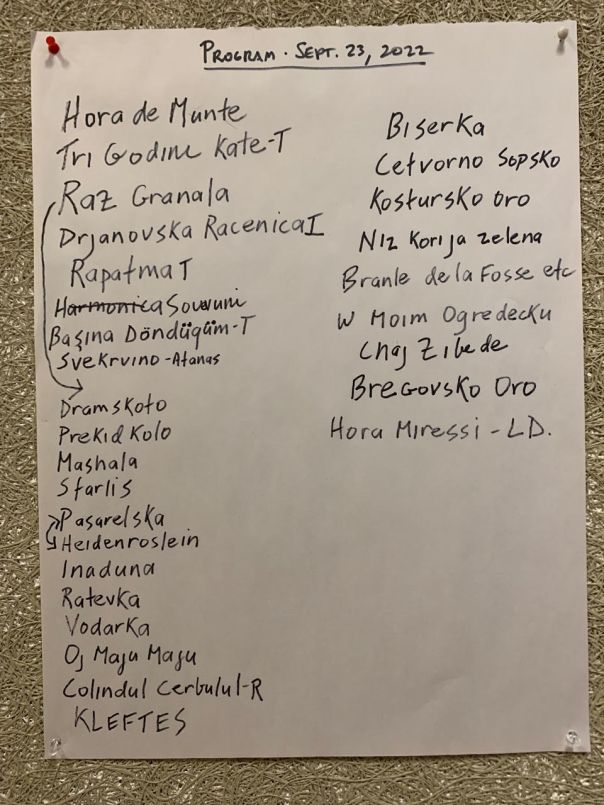 PROGRAM · SEPT. 23, 2022
Hora de Munte
Tri Godine Kate-T
Raz Granala
Drjanovska Racenica I
Rapatma T
Harmonica Souvuni
Başina Döndügüm-T
Svekrvino -Atanas
Dramskoto
Prekid Kolo
Mashala
Starlis
Pasarelska
Heidenroslein
Inaduna
Ratevka
Vodarka
Oj Maju Maju
Colindul Cerbulul-R
KLEFTES
Biserka
Cetvorno Sopsko
Kostursko oro
Niz Korija zelena
Branle de la Fosse etc
W Moim Ogredecku
Chaj Zibede
Bregovsko Oro
Hora Miressi - LD.